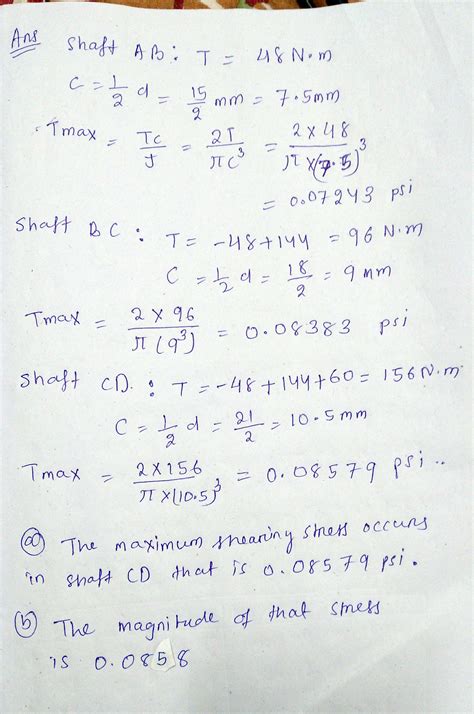 Ans Shaft AB: T = 48 N·m
C = 1/2 d = 15/2 mm = 7.5mm
Tmax = Tc/J = 2T/πC³ = 2×48/π×(7.5)³
= 0.07243 psi
Shaft BC: T = -48+144 = 96 N·m
C = 1/2 d = 18/2 = 9 mm
Tmax = 2×96/π(9³) = 0.08383 psi
Shaft CD.: T = -48+144+60 = 156 N·m
C = 1/2 d = 21/2 = 10.5mm
Tmax = 2×156/π×(10.5)³ = 0.08579 psi..
(a) The maximum shearing stress occurs
in shaft CD that is 0.08579 psi.
(b) The magnitude of that stress
is 0.0858